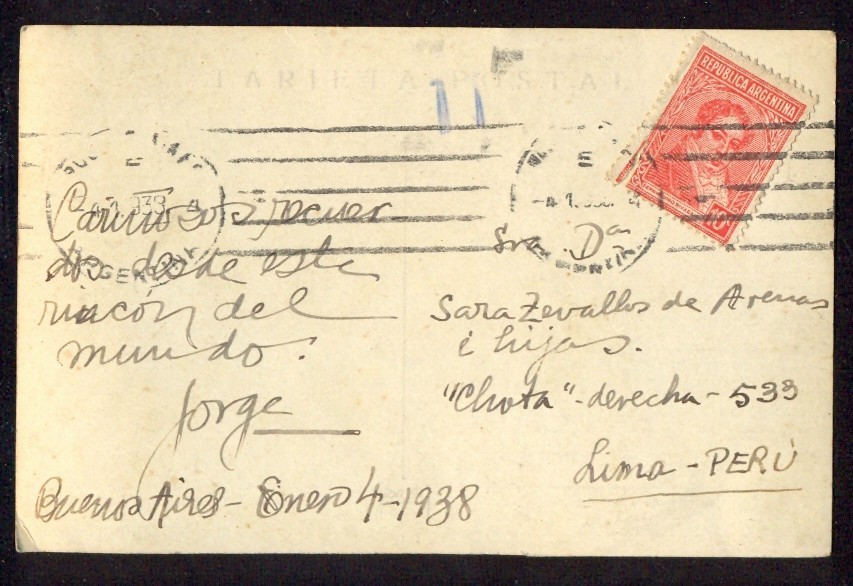 TARJETA POSTAL
REPUBLICA ARGENTINA
10
Cariñoso recuer-
do desde este
rincón del
mundo.
Jorge
Buenos Aires - Enero 4 - 1938
Sra. Da
Sara Zevallos de Arenas
é hijas.
"Chota" - derecha - 533
Lima - PERÚ